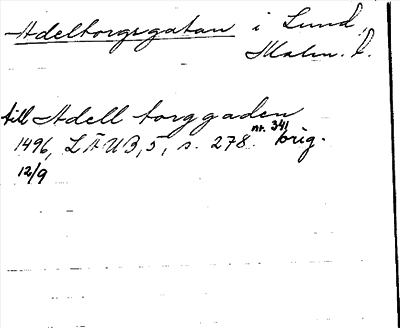 Adeltorgsgatan i Lund,
Malm. l.
till Adell torggaden
1496, LÄUB, 5, s. 278. nr. 341 orig.
12/9